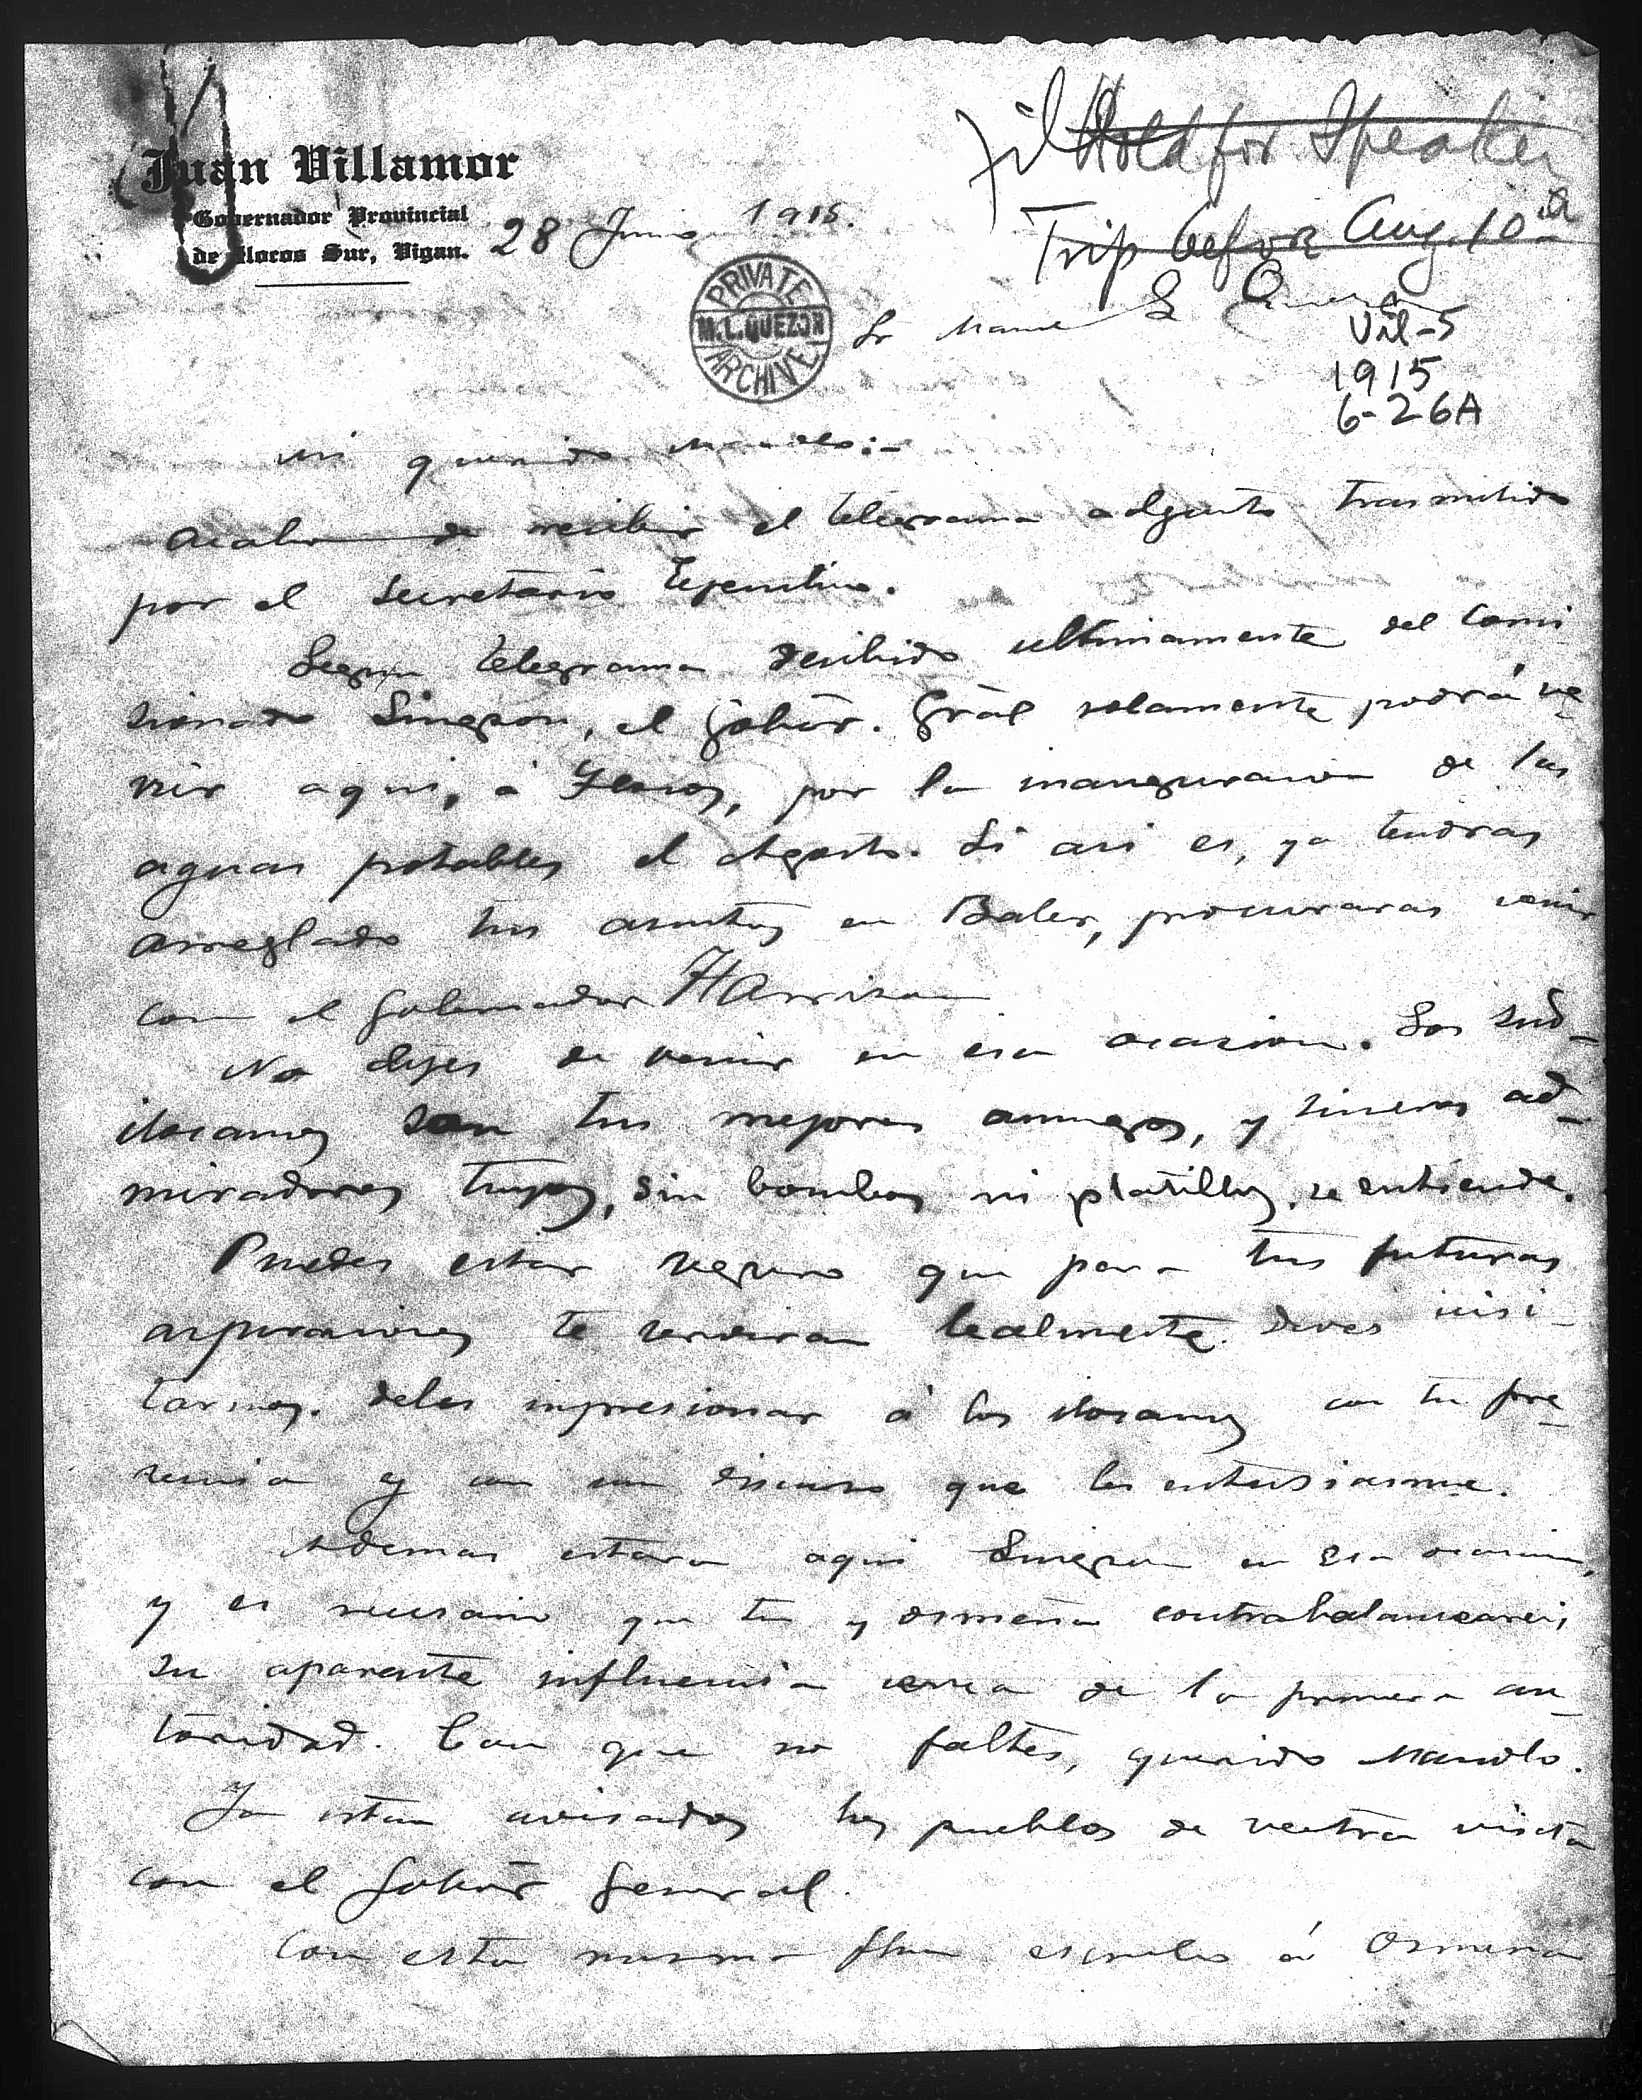 file
Hold for Speaker
Trip before Aug. 10th
Juan Villamor
Gobernador Provincial
de Ilocos Sur, Vigan.
28 Junio 1915.
PRIVATE
M.L. QUEZON
ARCHIVE
Sr Manuel L Quezon
Vil-5
1915
6-26A
Mi querido Manolo:-
Acabo de recibir el telegrama adjunto trasmitido
por el Secretario Ejecutivo.
Segun telegrama recibido ultimamente del Comi
sionado Singson, el Gobor. Gral solamente podrá ve-
nir aqui, á Ilocos, por la inauguracion de las
aguas potables el Agosto. Si asi es, ya tendras
arreglado tus asuntos en Baler, procuraras venir
con el Gobernador Harrison
No dejes de venir en esa ocasion. Los sud-
ilocanos son tus mejores amigos, y sinceros ad-
miradores tuyos, sin bombos ni platillos, se entiende.
Puedes estar seguro que para tus futuras
aspiraciones te serviran lealmente. Deves visi-
tarnos. debes impresionar á los ilocanos con tu pre-
sencia y con un discurso que les entusiasme.
Ademas estara aqui Singson en esa ocasion,
y es necesario que tu y Osmeña contrabalanceareis
su aparente influencia cerca de la primera au-
toridad. Con que no faltes, querido Manolo.
Ya estan avisados los pueblos de vestra visita
con el Gobor General.
Con esta misma fha escribo á Osmena